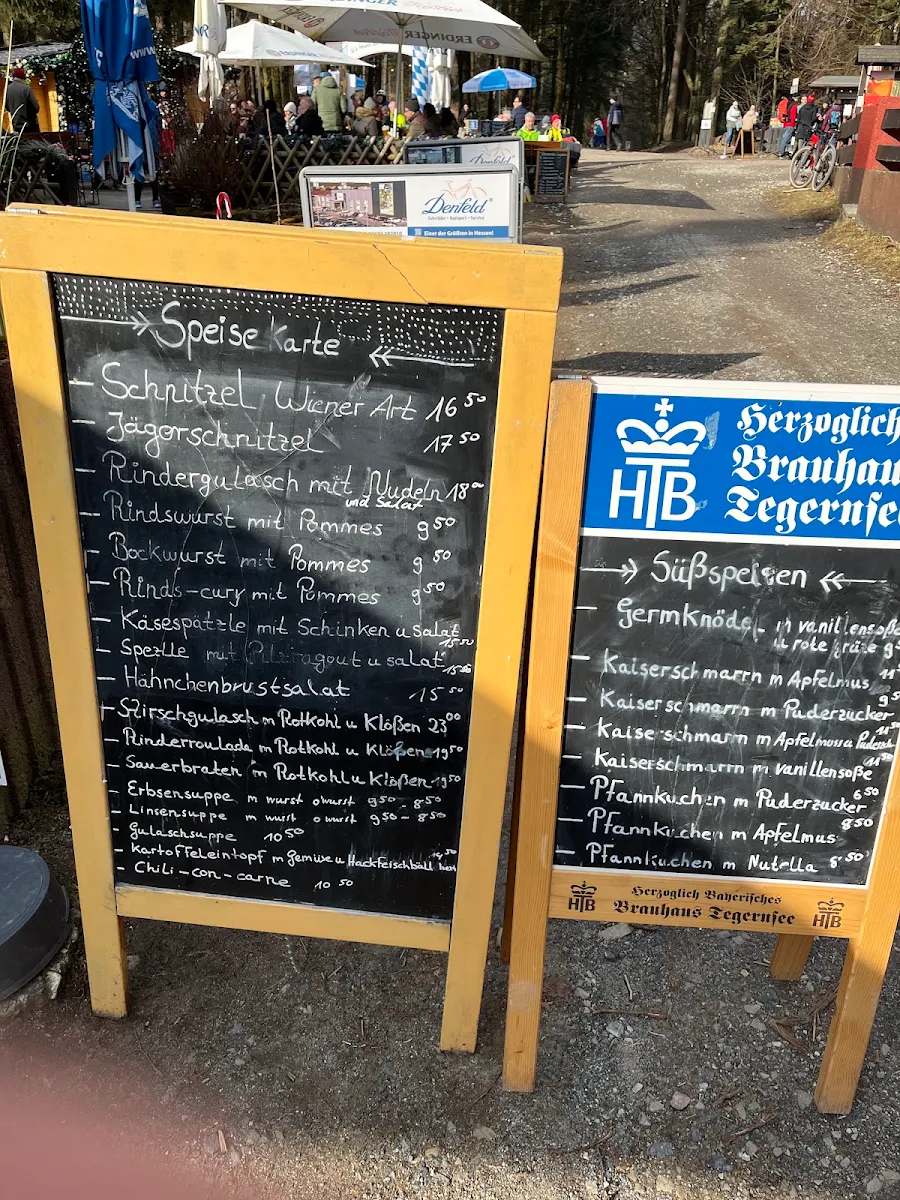 ERDINGER
ERDINGER
www
Denfeld
Denfeld
Fahrräder • Radsport • Service
Einer der Größten in Hessen!
Speise Karte
- Schnitzel Wiener Art 16 50
- Jägerschnitzel 17 50
- Rindergulasch mit Nudeln 18 00
und Salat
- Rindswurst mit Pommes 9 50
- Bockwurst mit Pommes 9 50
- Rinds-cury mit Pommes 9 50
- Käsespätzle mit Schinken u Salat
15 50
- Spezlle mit Pilzragout u salat
15 50
- Hähnchenbrustsalat 15 50
- Hirschgulasch m Rotkohl u Klößen 23 00
- Rinderroulade m Rotkohl u Klößen 19 50
- Sauerbraten m Rotkohl u Klößen 19 50
- Erbsensuppe m wurst o wurst 9 50 - 8 50
- Linsensuppe m wurst o wurst 9 50 - 8 50
- Gulaschsuppe 10 50
- Kartoffeleintopf m Gemüse u Hackfleischbäll
- Chili-con-carne 10 50
HTB
Herzoglich
Brauhau
Tegernse
Süßspeisen
- Germknödel m vanillensoße
u rote grüze 9
- Kaiserschmarrn m Apfelmus 11
- Kaiserschmarrn m Puderzucker 9 5
- Kaiserschmarrn m Apfelmus u Puderzu
- Kaiserschmarrn m vanillensoße
- Pfannkuchen m Puderzucker 6 50
- Pfannkuchen m Apfelmus 8 50
- Pfannkuchen m Nutella 8 50
HTB
Herzoglich Bayerisches
Brauhaus Tegernsee
HTB